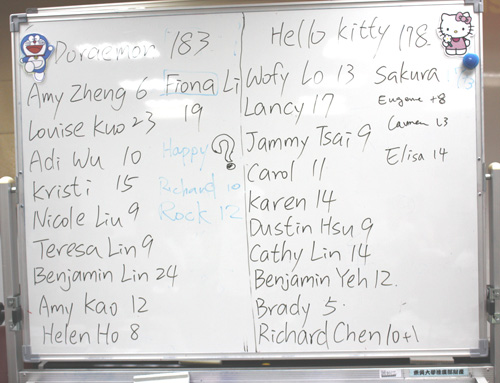 Doraemon 183
Amy Zheng 6
Louise Kuo 23
Adi Wu 10
Kristi 15
Nicole Liu 9
Teresa Lin 9
Benjamin Lin 24
Amy Kao 12
Helen Ho 8
Fiona Li
19
Happy ?
Richard 10
Rock 12
Hello kitty 178
Wofy Lo 13
Lancy 17
Jammy Tsai 9
Carol 11
Karen 14
Dustin Hsu 9
Cathy Lin 14
Benjamin Yeh 12.
Brady 5.
Richard Chen 10+1
Sakura
Eugene +8
Carmen 13
Elisa 14